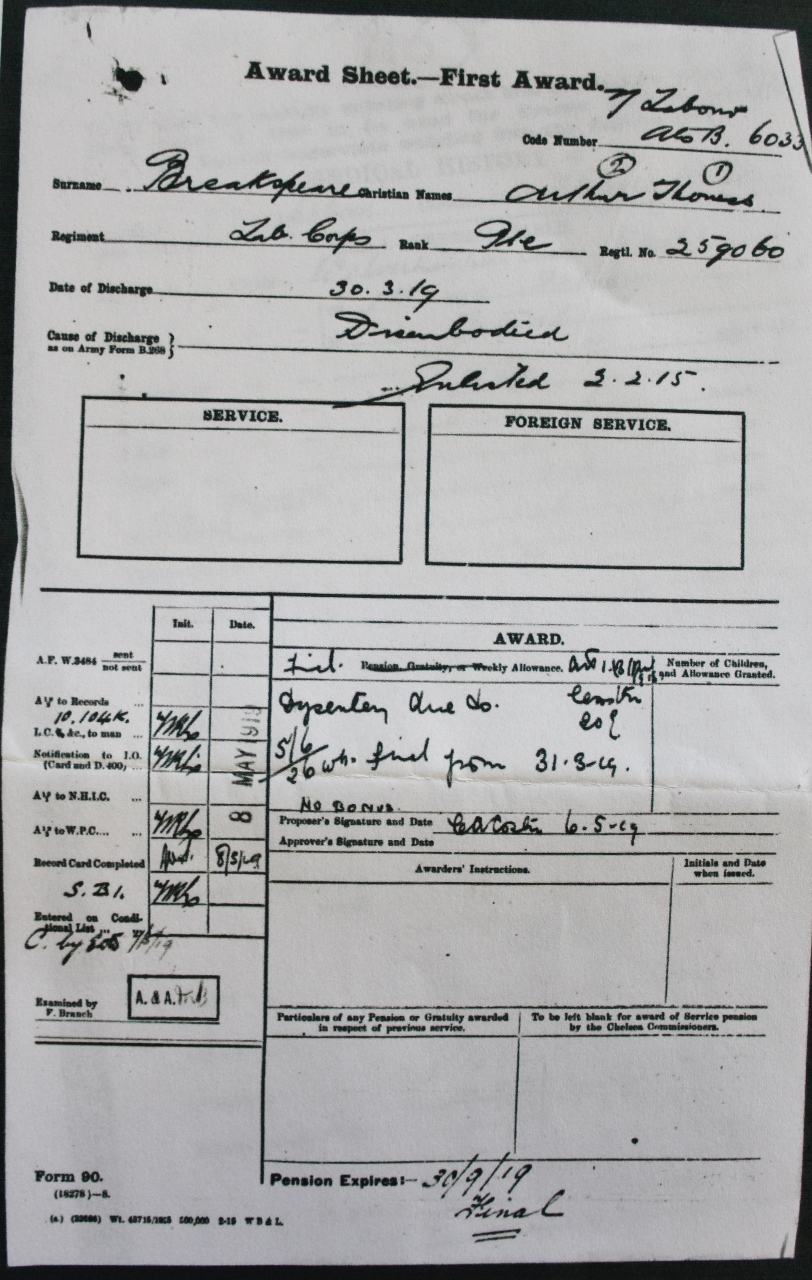 Award Sheet.—First Award.
7/ Labour
Code Number 6033
② ①
Surname Breakspeare Christian Names Arthur Thomas
Regiment Lab. Corps Rank Pte Regtl. No. 259060
Date of Discharge 30.3.19
Cause of Discharge
as on Army Form B.268 } Disembodied
Enlisted 2.2.15.
SERVICE.
FOREIGN SERVICE.
Init. Date.
AWARD.
A.F. W.3484 sent
not sent
Final. Pension, Gratuity, or Weekly Allowance.
Number of Children,
and Allowance Granted.
to Records ...
Dysentery due to.
10. 104K.
I.C. &c., to man ...
Notification to I.O.
(Card and D. 400) ...
5/6
26 wks final from 31-3-19.
8 MAY 1919
to N.H.I.C. ...
No Bonus
to W.P.C. ...
Proposer's Signature and Date 6-5-19
Approver's Signature and Date
Record Card Completed 8/5/19
Awarders' Instructions.
Initials and Date
when issued.
S.B1.
Entered on Condi-
tional List ...
C. by
Examined by
F. Branch
A. & A.
Particulars of any Pension or Gratuity awarded
in respect of previous service.
To be left blank for award of Service pension
by the Chelsea Commissioners.
Form 90.
(18278)—8.
Pension Expires:- 30/9/19
Final
W B & L.